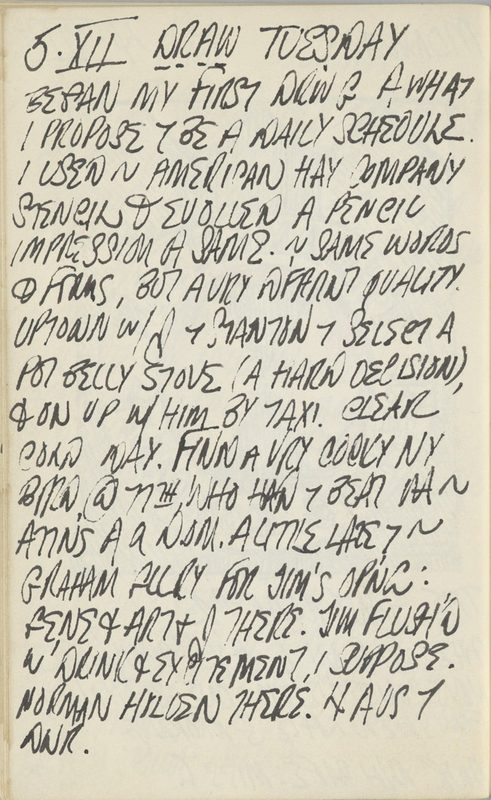 5·XII DRAW TUESDAY
BEGAN MY FIRST DRWG A WHAT
I PROPOSE T BE A DAILY SCHEDULE.
I USED ~ AMERICAN HAY COMPANY
STENCIL & EVOLVED A PENCIL
IMPRESSION A SAME. ~ SAME WORDS
& FORMS, BUT A VRY DFFRNT QUALITY.
UPTOWN W/ J T STANTON T SELECT A
POT BELLY STOVE (A HARD DECISION),
& ON UP W/ HIM BY TAXI. CLEAR
COLD DAY. FIND A VRY COCKY NY
BIRD @ 77TH WHO HAD T BEAT
A LITTLE LATE T ~
GRAHAM GLLRY FOR JIM'S OPNG:
GENE & ART & J THERE. JIM FLUSH'D
W DRINK & EXCITEMENT, I SUPPOSE.
NORMAN THERE.
DNR.